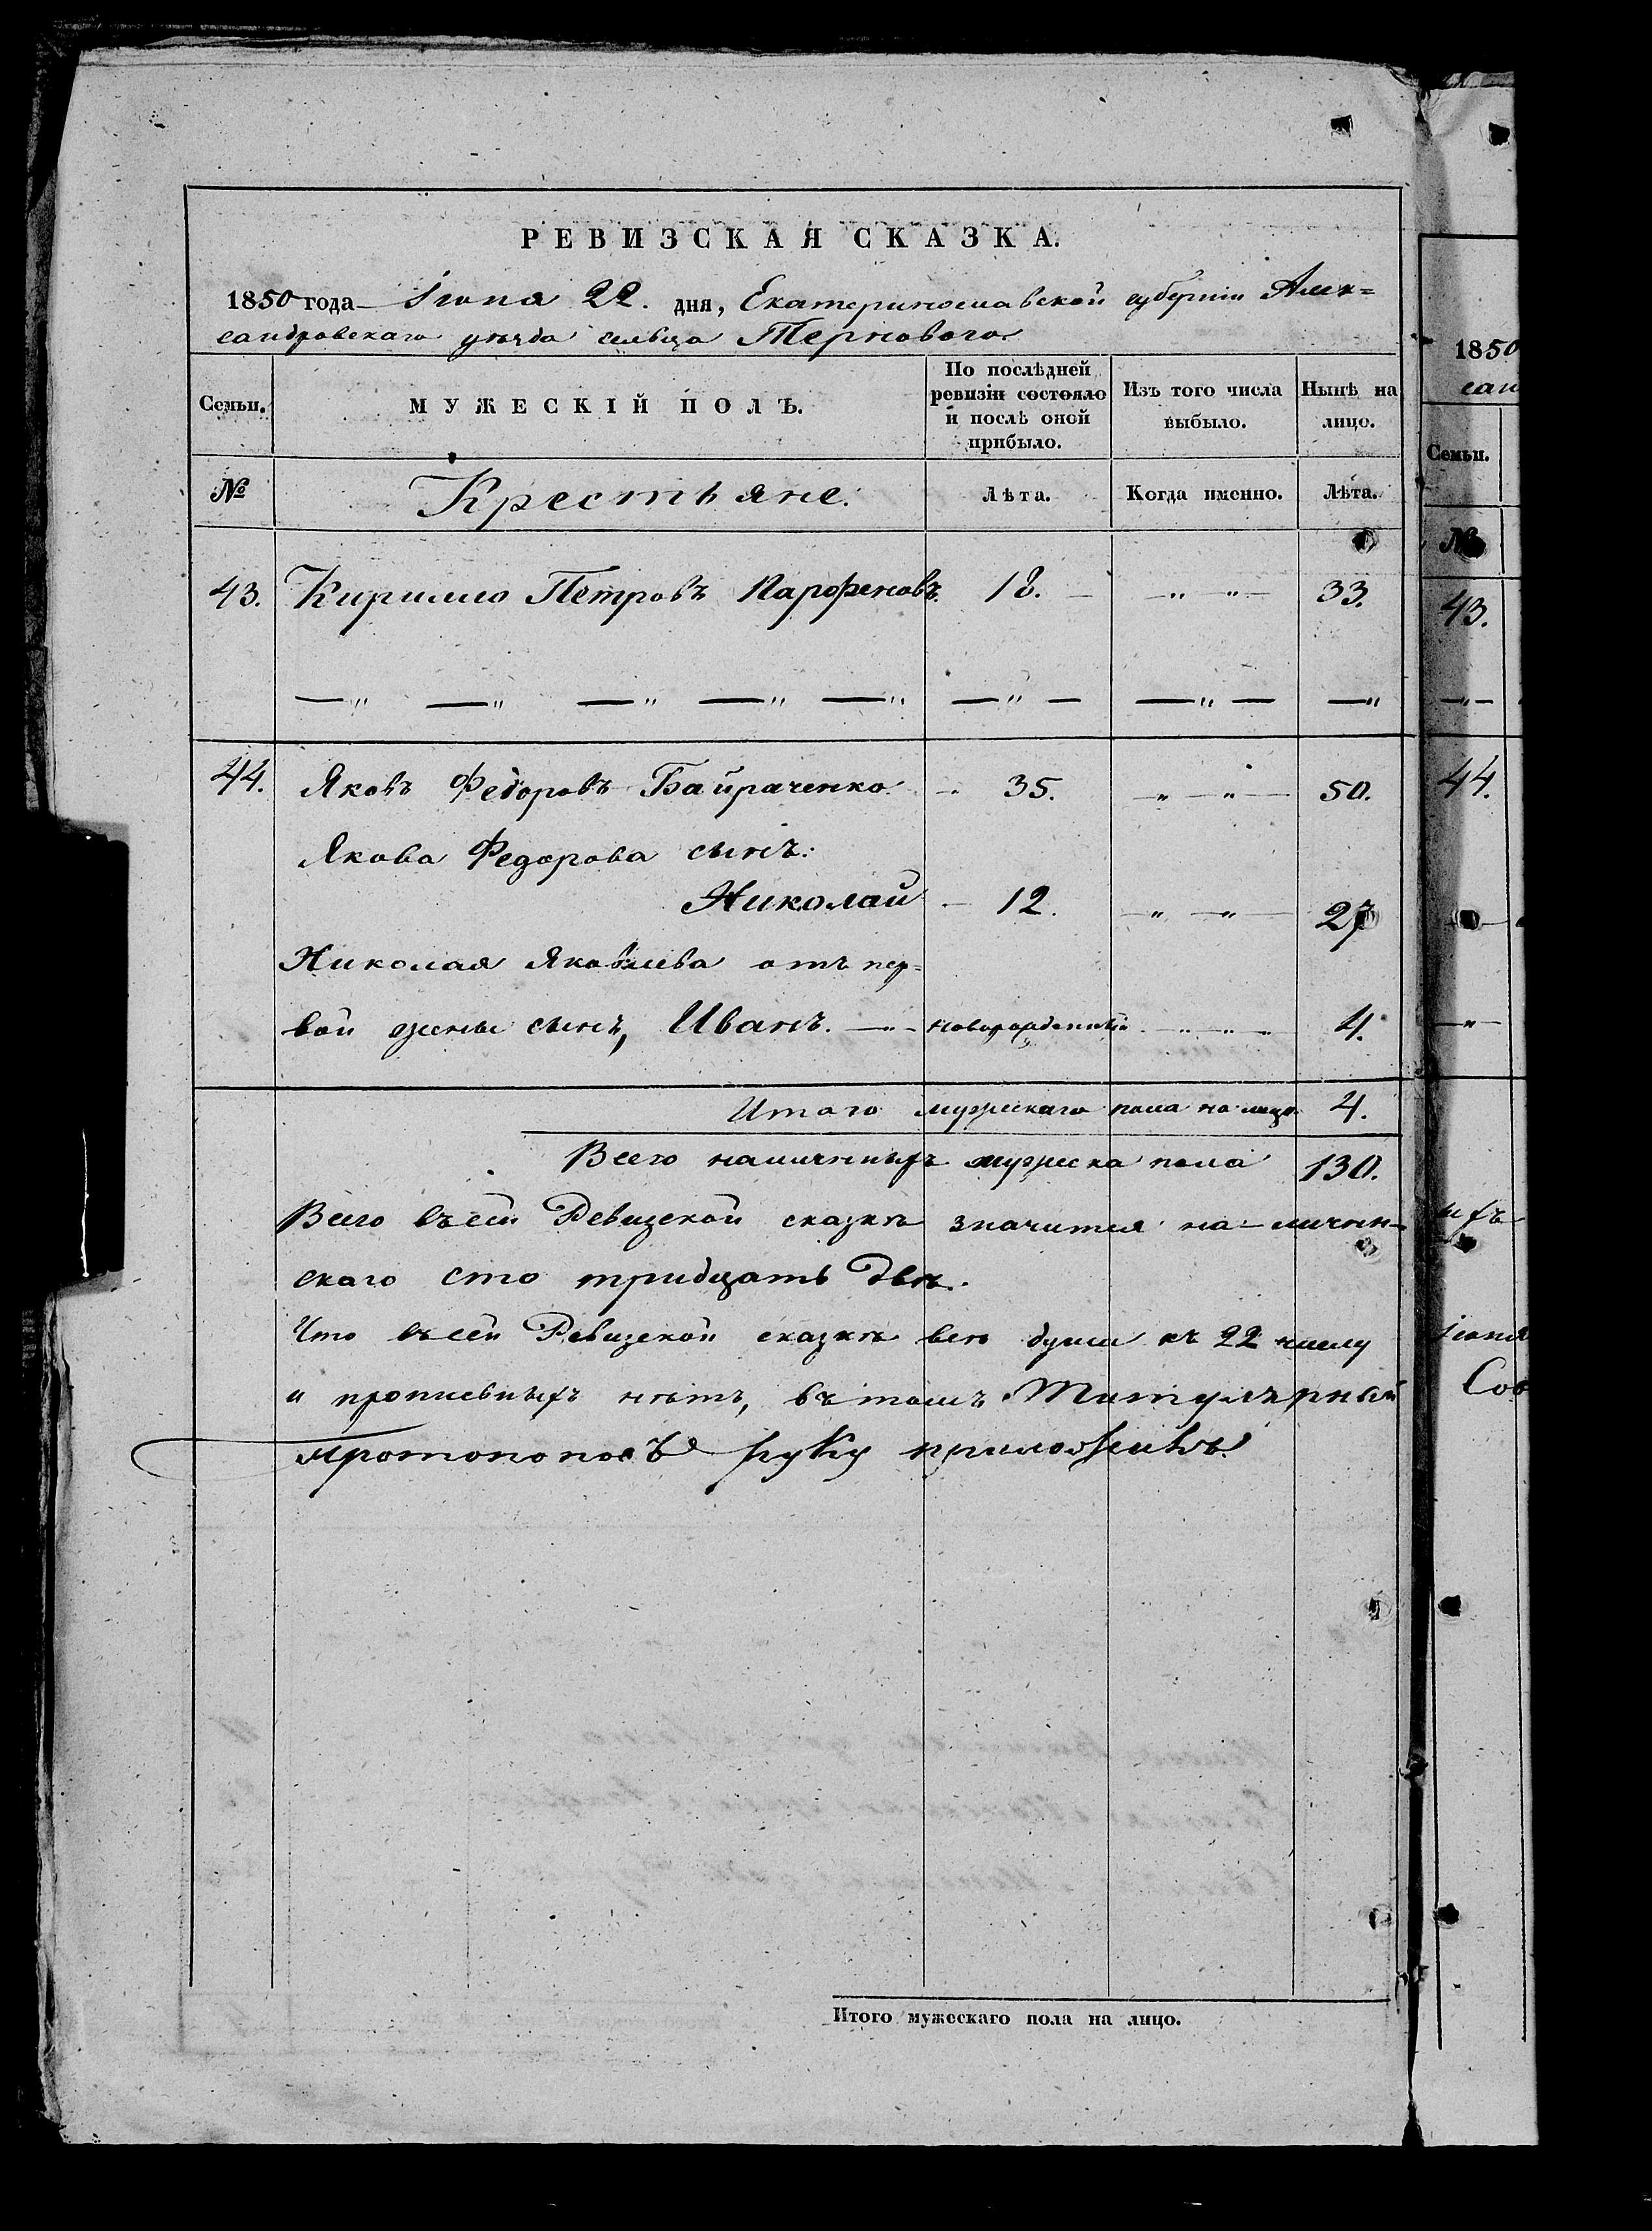 РЕВИЗСКАЯ СКАЗКА.
1850 года Іюня 22. дня, Екатеринославской губерніи Алек=
сандровскаго уѣзда сельца Терноваго
Семьи.
МУЖЕСКІЙ ПОЛЪ.
По послѣдней ревизіи состояло и послѣ оной прибыло.
Изъ того числа выбыло.
Нынѣ на лицо.
№ Крестьяне. Лѣта. Когда именно. Лѣта.
43. Кирилло Петровъ Парфеновъ. 18. — „ „ — 33.
44. Яковъ Федоровъ Байраченко 35. — „ — „ — 50.
Якова Федорова сынъ:
Николай — 12. — „ — „ — 27
Николая Яковлева отъ пер=
вой жены сынъ, Иванъ. — новорожденный „ „ „ 4.
Итого мужескаго пола на лицо 4.
Всего наличныхъ мужеска пола 130.
Всего въ сей Ревизской сказкѣ значится на-личнн-
скаго сто тридцать двѣ.
Что въ сей Ревизской сказкѣ всѣ души къ 22 числу
и прописныхъ нѣтъ, въ томъ Титулярный
руку приложилъ
Итого мужескаго пола на лицо.
1850
сан
Семьи.
№
43.
44.
ыхъ
Іюня
Сов